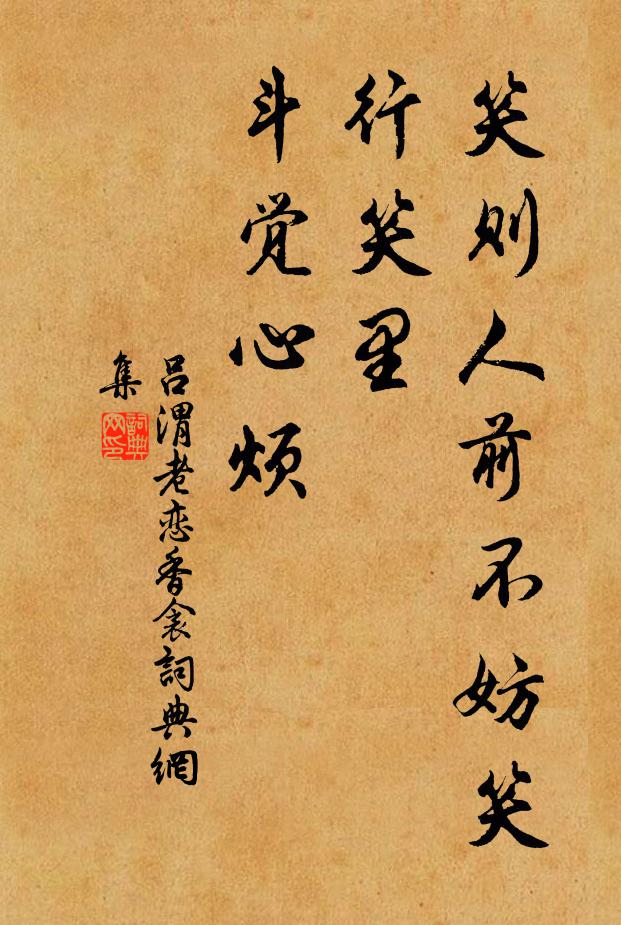 笑则人前不妨笑
行笑里
斗觉心烦
吕渭老恋香衾詞典網
集
詞典
网印